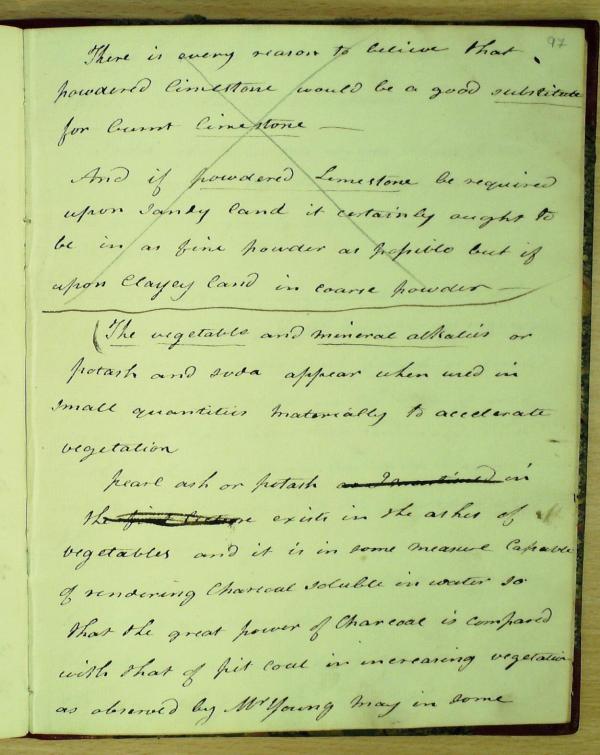 97
There is every reason to believe that
powdered limestone would be a good substitute
for burnt limestone —
And if powdered Limestone be required
upon Sandy land it certainly ought to
be in as fine powder as possible but if
upon Clayey land in coarse powder —
(The vegetable and mineral alkalies or
potash and soda appear when used in
small quantities materially to accelerate
vegetation
pearl ash or potash as I mentioned in
the first Lecture exists in the ashes of
vegetables and it is in some measure Capable
of rendering Charcoal soluble in water so
that the great power of Charcoal is compared
with that of pit coal in increasing vegetation
as observed by Mr Young may in some